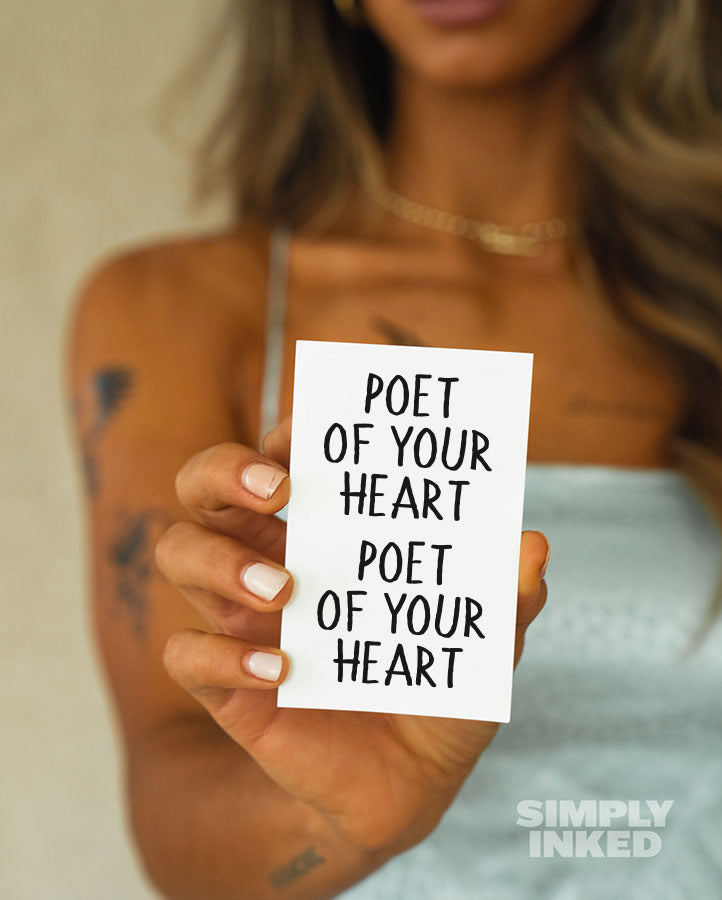 POET
OF YOUR
HEART
POET
OF YOUR
HEART
SIMPLY
INKED